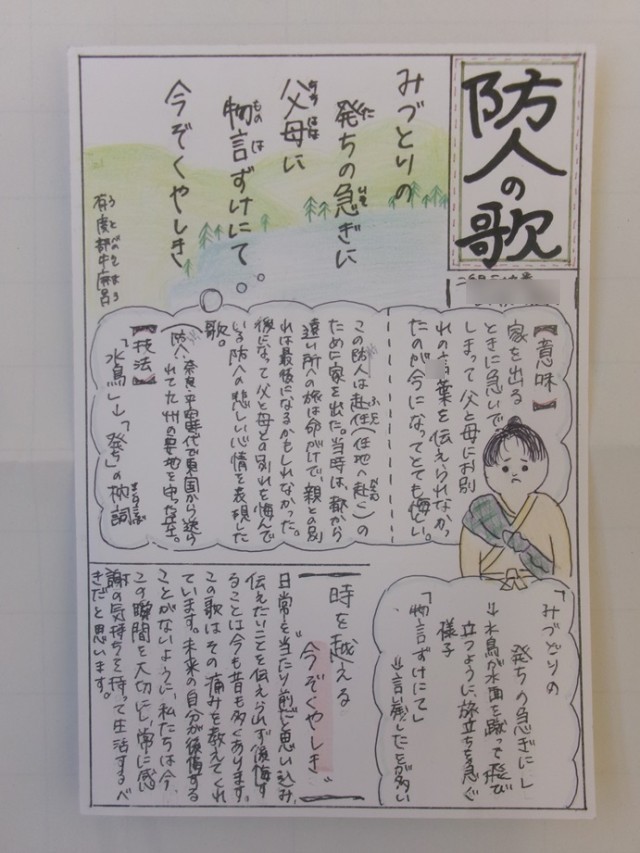 防人の歌
みづとりの
発ちの急ぎに
父母に
物言ずけにて
今ぞくやしき
有度部牛麻呂
【意味】
家を出る
ときに急いで
しまって父と母にお別
れの言葉を伝えられなかっ
たのが今になってとても悔しい。
この防人は赴任(任地へ赴く)の
ために家を出た。当時は、都から
遠い所への旅は命がけで、親との別
れは最後になるかもしれなかった。
後になって父と母との別れを悔んで
いる防人の悲しい心情を表現した
歌。
防人…奈良・平安時代で東国から送ら
れて九州の要地を守った兵士。
【技法】
「水鳥」→「発ち」の枕詞
「みづどりの
発ちの急ぎに」
→水鳥が水面を蹴って飛び
立つように、旅立ちを急ぐ
様子
「物言ずけにて」
→言い残したことが多い
時を越える
"今ぞくやしき"
日常を当たり前だと思い込み、
伝えたいことを伝えられず後悔す
ることは今も昔も多くあります。
この歌はその痛みを教えてくれ
ています。未来の自分が後悔する
ことがないように、私たちは今、
この瞬間を大切にし、常に感
謝の気持ちを持って生活するべ
きだと思います。